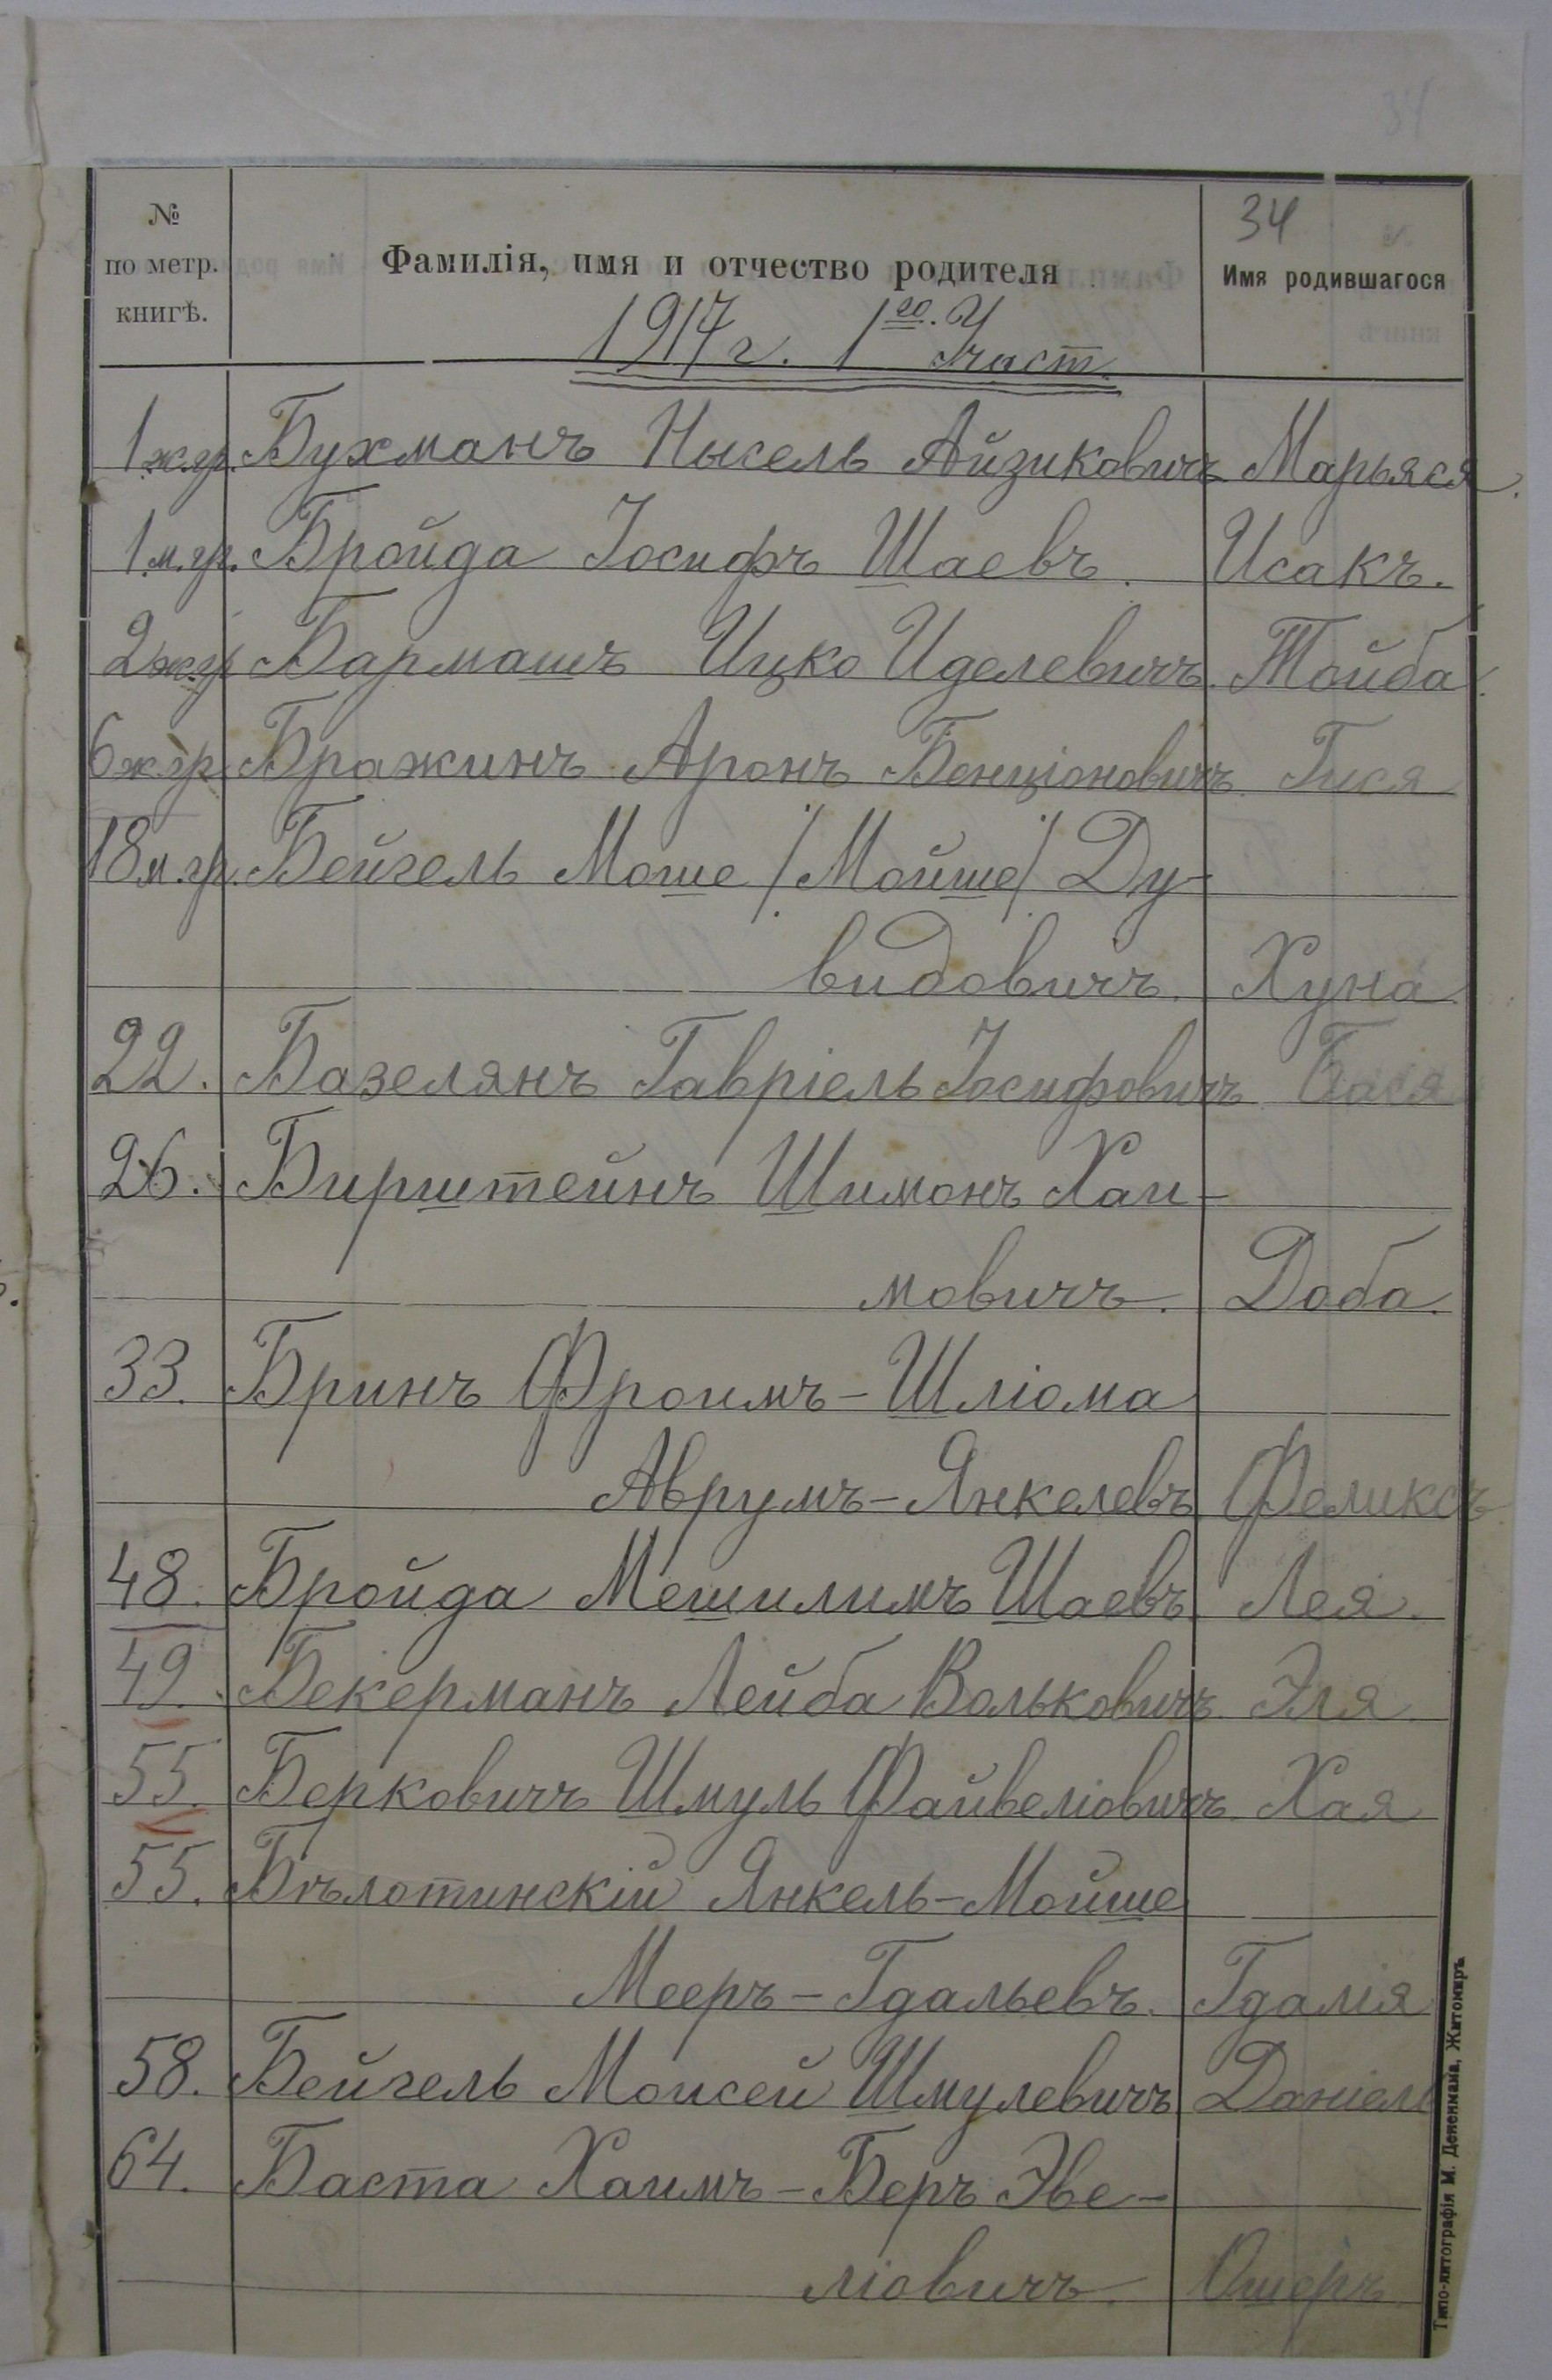 34
№ по метр. книгѣ.
Фамилія, имя и отчество родителя
34
Имя родившагося
1917 г. 1го. Участ.
1 ж.гр. Бухманъ Нысель Айзиковичъ Марьяся.
1 м.гр. Бройда Іосифъ Шаевъ. Исакъ.
2 ж.гр. Бармашъ Ицко Иделевичъ. Тойба.
6 ж.гр. Бражинъ Аронъ Бенціоновичъ. Гися
18 м.гр. Бейгель Моше /Мойше/ Ду-
видовичъ. Хуна
22. Базелянъ Гавріель Іосифовичъ Бася
26. Бирштейнъ Шимонъ Хаи-
мовичъ. Доба.
33. Бринъ Фроимъ-Шліома
Аврумъ-Янкелевъ Феликсъ
48. Бройда Мешилимъ Шаевъ. Лея.
49. Бекерманъ Лейба Вольковичъ. Эля.
55. Берковичъ Шмуль Файвеліовичъ. Хая
55. Бѣлотинскій Янкель-Мойше
Мееръ-Гдальевъ. Гдалія
58. Бейгель Моисей Шмулевичъ Даніель
64. Баста Хаимъ-Беръ Эве-
ліовичъ. Ошеръ.
Типо-литографія М. Дененмана, Житомиръ